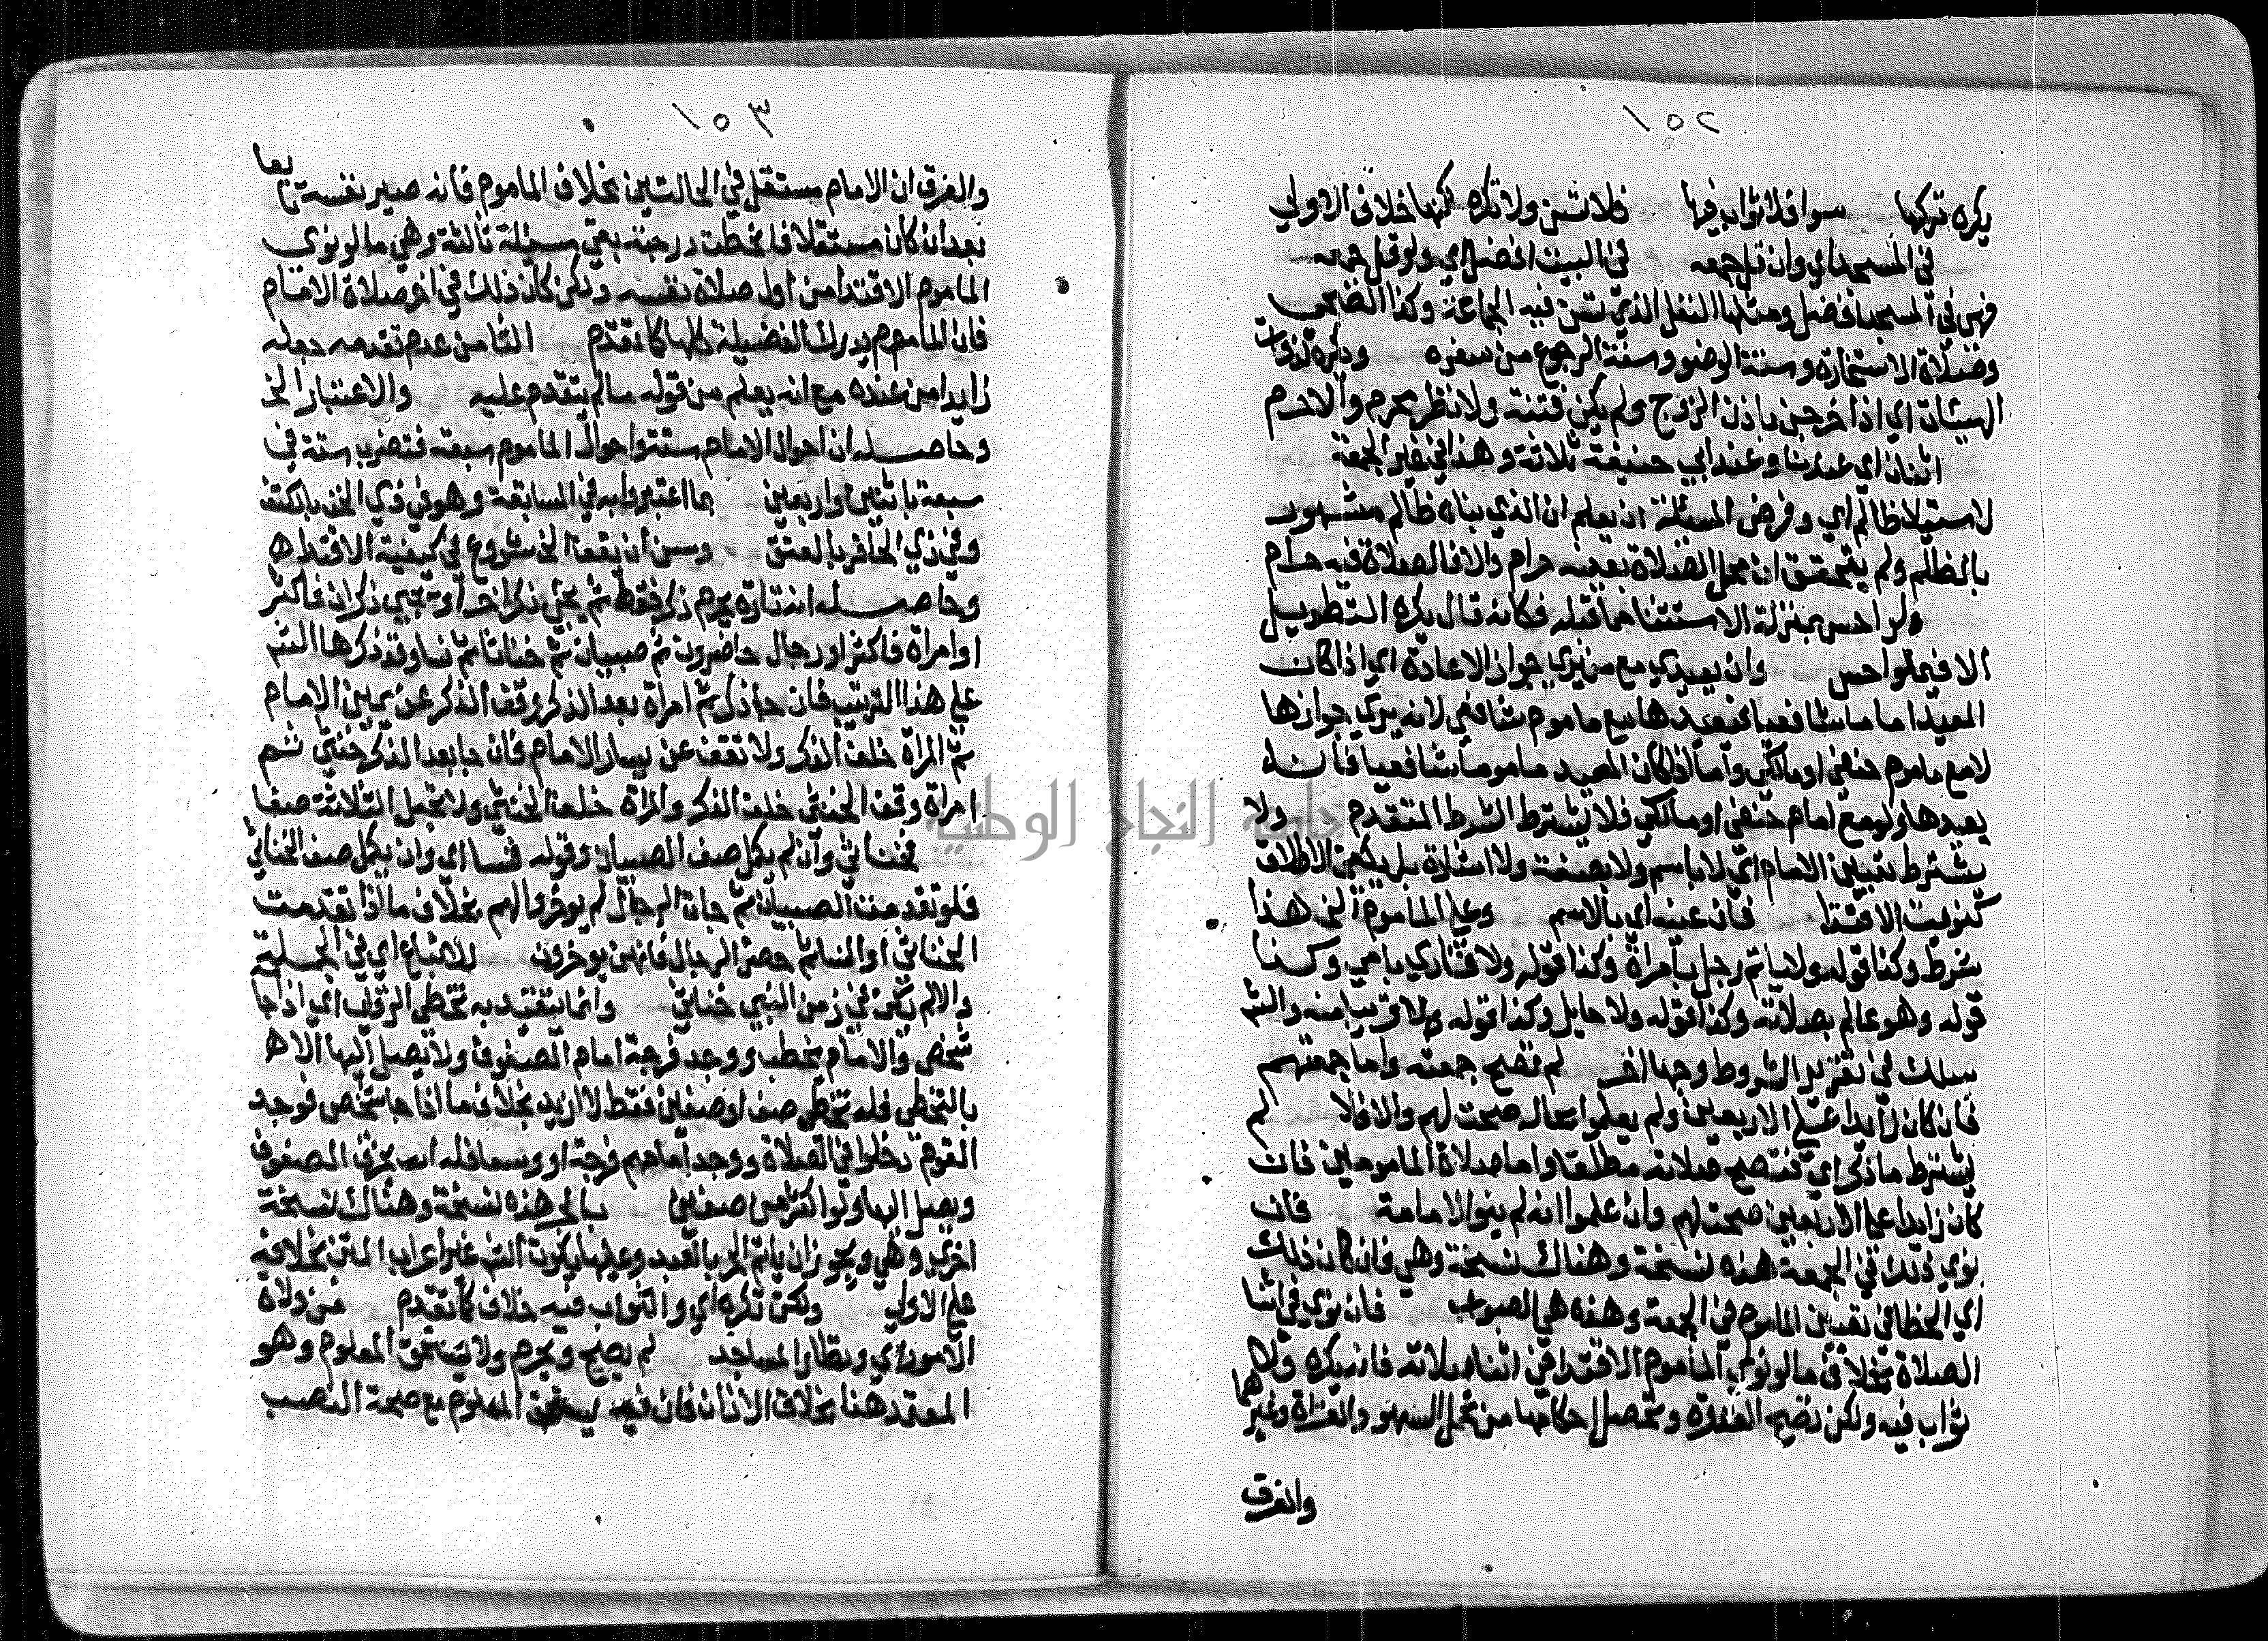 ١٥٢
يكره تركها سوا فلا ثواب فيها فلا تسن ولا تكره لكنها خلاف الاولي
في المسجد اي وان قل جمعه في البيت افضل اي ولو قل جمعه
فهي في المسجد افضل ومثلها النفل الذي تسن فيه الجماعة وكذا الضحى
وصلاة الاستخارة وسنة الوضو وسنة الرجوع من سفره ويكره لذوات
الهيئات اي اذا خرجن باذن الزوج ولم يكن فتنة ولا نظر محرم والاحرم
اثنان اي عندنا وعند ابي حنيفة ثلاثة وهذا في غير الجمعة
لاستيلا ظالم اي وفرض المسئلة ان يعلم ان الذي بناه ظالم مشهور
بالظلم ولم يتحقق ان محل الصلاة بعينه حرام والا فالصلاة فيه حرام
ولو احس بمنزلة الاستثنا مما قبله فكانه قال يكره التطويل
الا فيما لو احس وان يعيد مع من يري جواز الاعادة اي اذا كان
المعيد اماما شافعيا فيعيدها مع ماموم شافعي لانه يري جوازها
لا مع ماموم حنفي او مالكي واما اذا كان المعيد ماموما شافعيا فانه
يعيدها ولو مع امام حنفي او مالكي فلا يشترط الشرط المتقدم ولا
يشترط تعيين الامام اي لا باسم ولا بصفة ولا اشارة بل يكفي الاطلاق
كنويت الاقتدا فان عينه اي بالاسم وعلي الماموم الخ هذا
شرط وكذا قوله ولا ياتم رجل بامراة وكذا قوله ولا قاري بامي وكذا
قوله وهو عالم بصلاته وكذا قوله ولا حايل وكذا قوله قريبا منه والش
سلك في تقرير الشروط وجها اخر لم تصح جمعته واما جمعتهم
فان كان زايدا علي الاربعين ولم يعلموا بحاله صحت لهم والا فلا لم
يشترط ما ذكر اي فتصح صلاته مطلقا واما صلاة المامومين فان
كان زايدا علي الاربعين صحت لهم وان علموا انه لم ينو الامامة فان
نوي ذلك في الجمعة هذه نسخة وهناك نسخة وهي فان كان ذلك
اي الخطا في تعيين الماموم في الجمعة وهذه هي الصواب فان نوي في اثنا
الصلاة بخلاف ما لو نوي الماموم الاقتدا في اثناء صلاته فانه يكره ولا
ثواب فيه ولكن تصح القدوة وتحصل احكامها من تحمل السهو والقراة وغيرها
والفرق
١٥٣
والفرق ان الامام مستقل في الحالتين بخلاف الماموم فانه صير نفسه تابعا
بعد ان كان مستقلا فانحطت درجته بقي مسئلة ثالثة وهي ما لو نوى
الماموم الاقتدا من اول صلاة نفسه ولكن كان ذلك في اخر صلاة الامام
فان الماموم يدرك الفضيلة كلها كما تقدم الثامن عدم تقدمه جعله
زايدا من عنده مع انه يعلم من قوله ما لم يتقدم عليه والاعتبار الخ
وحاصله ان احوال الامام ستة واحوال الماموم سبعة فتضرب ستة في
سبعة باثنين واربعين بما اعتبروا به في المسابقة وهو في ذي الخف بالكتف
وفي ذي الحافر بالعنق وسن ان يقف الخ شروع في كيفية الاقتداء
وحاصله انه تارة يحرم ذكر فقط ثم يجي ذكر اخر او يجي ذكران فاكثر
او امراة فاكثر او رجال حاضرون ثم صبيان ثم خناثا ثم نسا وقد ذكرها الش
علي هذا الترتيب فان جا ذكر ثم امراة بعد الذكر وقف الذكر عن يمين الامام
ثم المراة خلف الذكر ولا تقف عن يسار الامام فان جا بعد الذكر خنثى ثم
امراة وقف الخنثي خلف الذكر والمراة خلف الخنثي ولا تجعل الثلاثة صفا
فخناثي وان لم يكمل صف الصبيان وقوله فنسا اي وان لم يكمل صف الخناثي
فلو تقدمت الصبيان ثم جات الرجال لم يوخروا لهم بخلاف ما اذا تقدمت
الخناثي او النسا ثم حضر الرجال فانهن يوخرون للاتباع اي في الجملة
والا لم تكن في زمن النبي خناثي وانما يتقيد به تخطي الرقاب اي اذا جا
شخص والامام يخطب ووجد فرجة امام الصفوف ولا يصل اليها الا
بالتخطي فله تخطي صف او صفين فقط لا ازيد بخلاف ما اذا جا شخص فوجد
القوم دخلوا في الصلاة ووجد امامهم فرجة او وسعا فله ان يخرق الصفوف
ويصل اليها ولو اكثر من صفين بالحر هذه نسخة وهناك نسخة
اخري وهي ويجوز ان ياتم الحر بالعبد وعليها يكون الش غير اعراب المتن بخلافه
علي الاولي ولكن تكره اي والثواب فيه خلاف كما تقدم من ولاة
الامور اي ونظار المساجد لم يصح ويحرم ولا يستحق المعلوم وهو
المعتمد هنا بخلاف الاذان فان فيه يستحق المعلوم مع صحة النصب
جامعة النجاح الوطنية